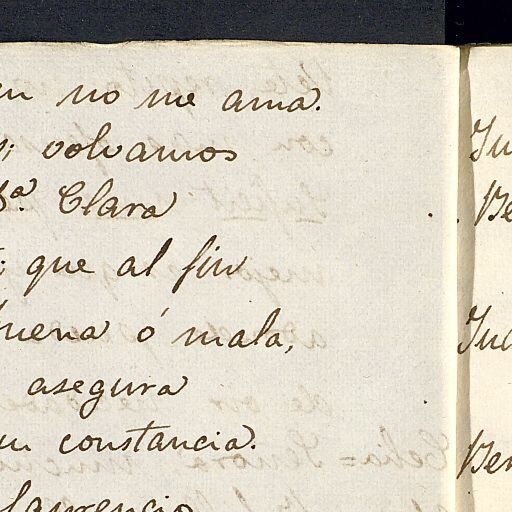 no me ama.
volvamos
Clara
que al fin
buena ó mala,
asegura
constancia.
Laurencio